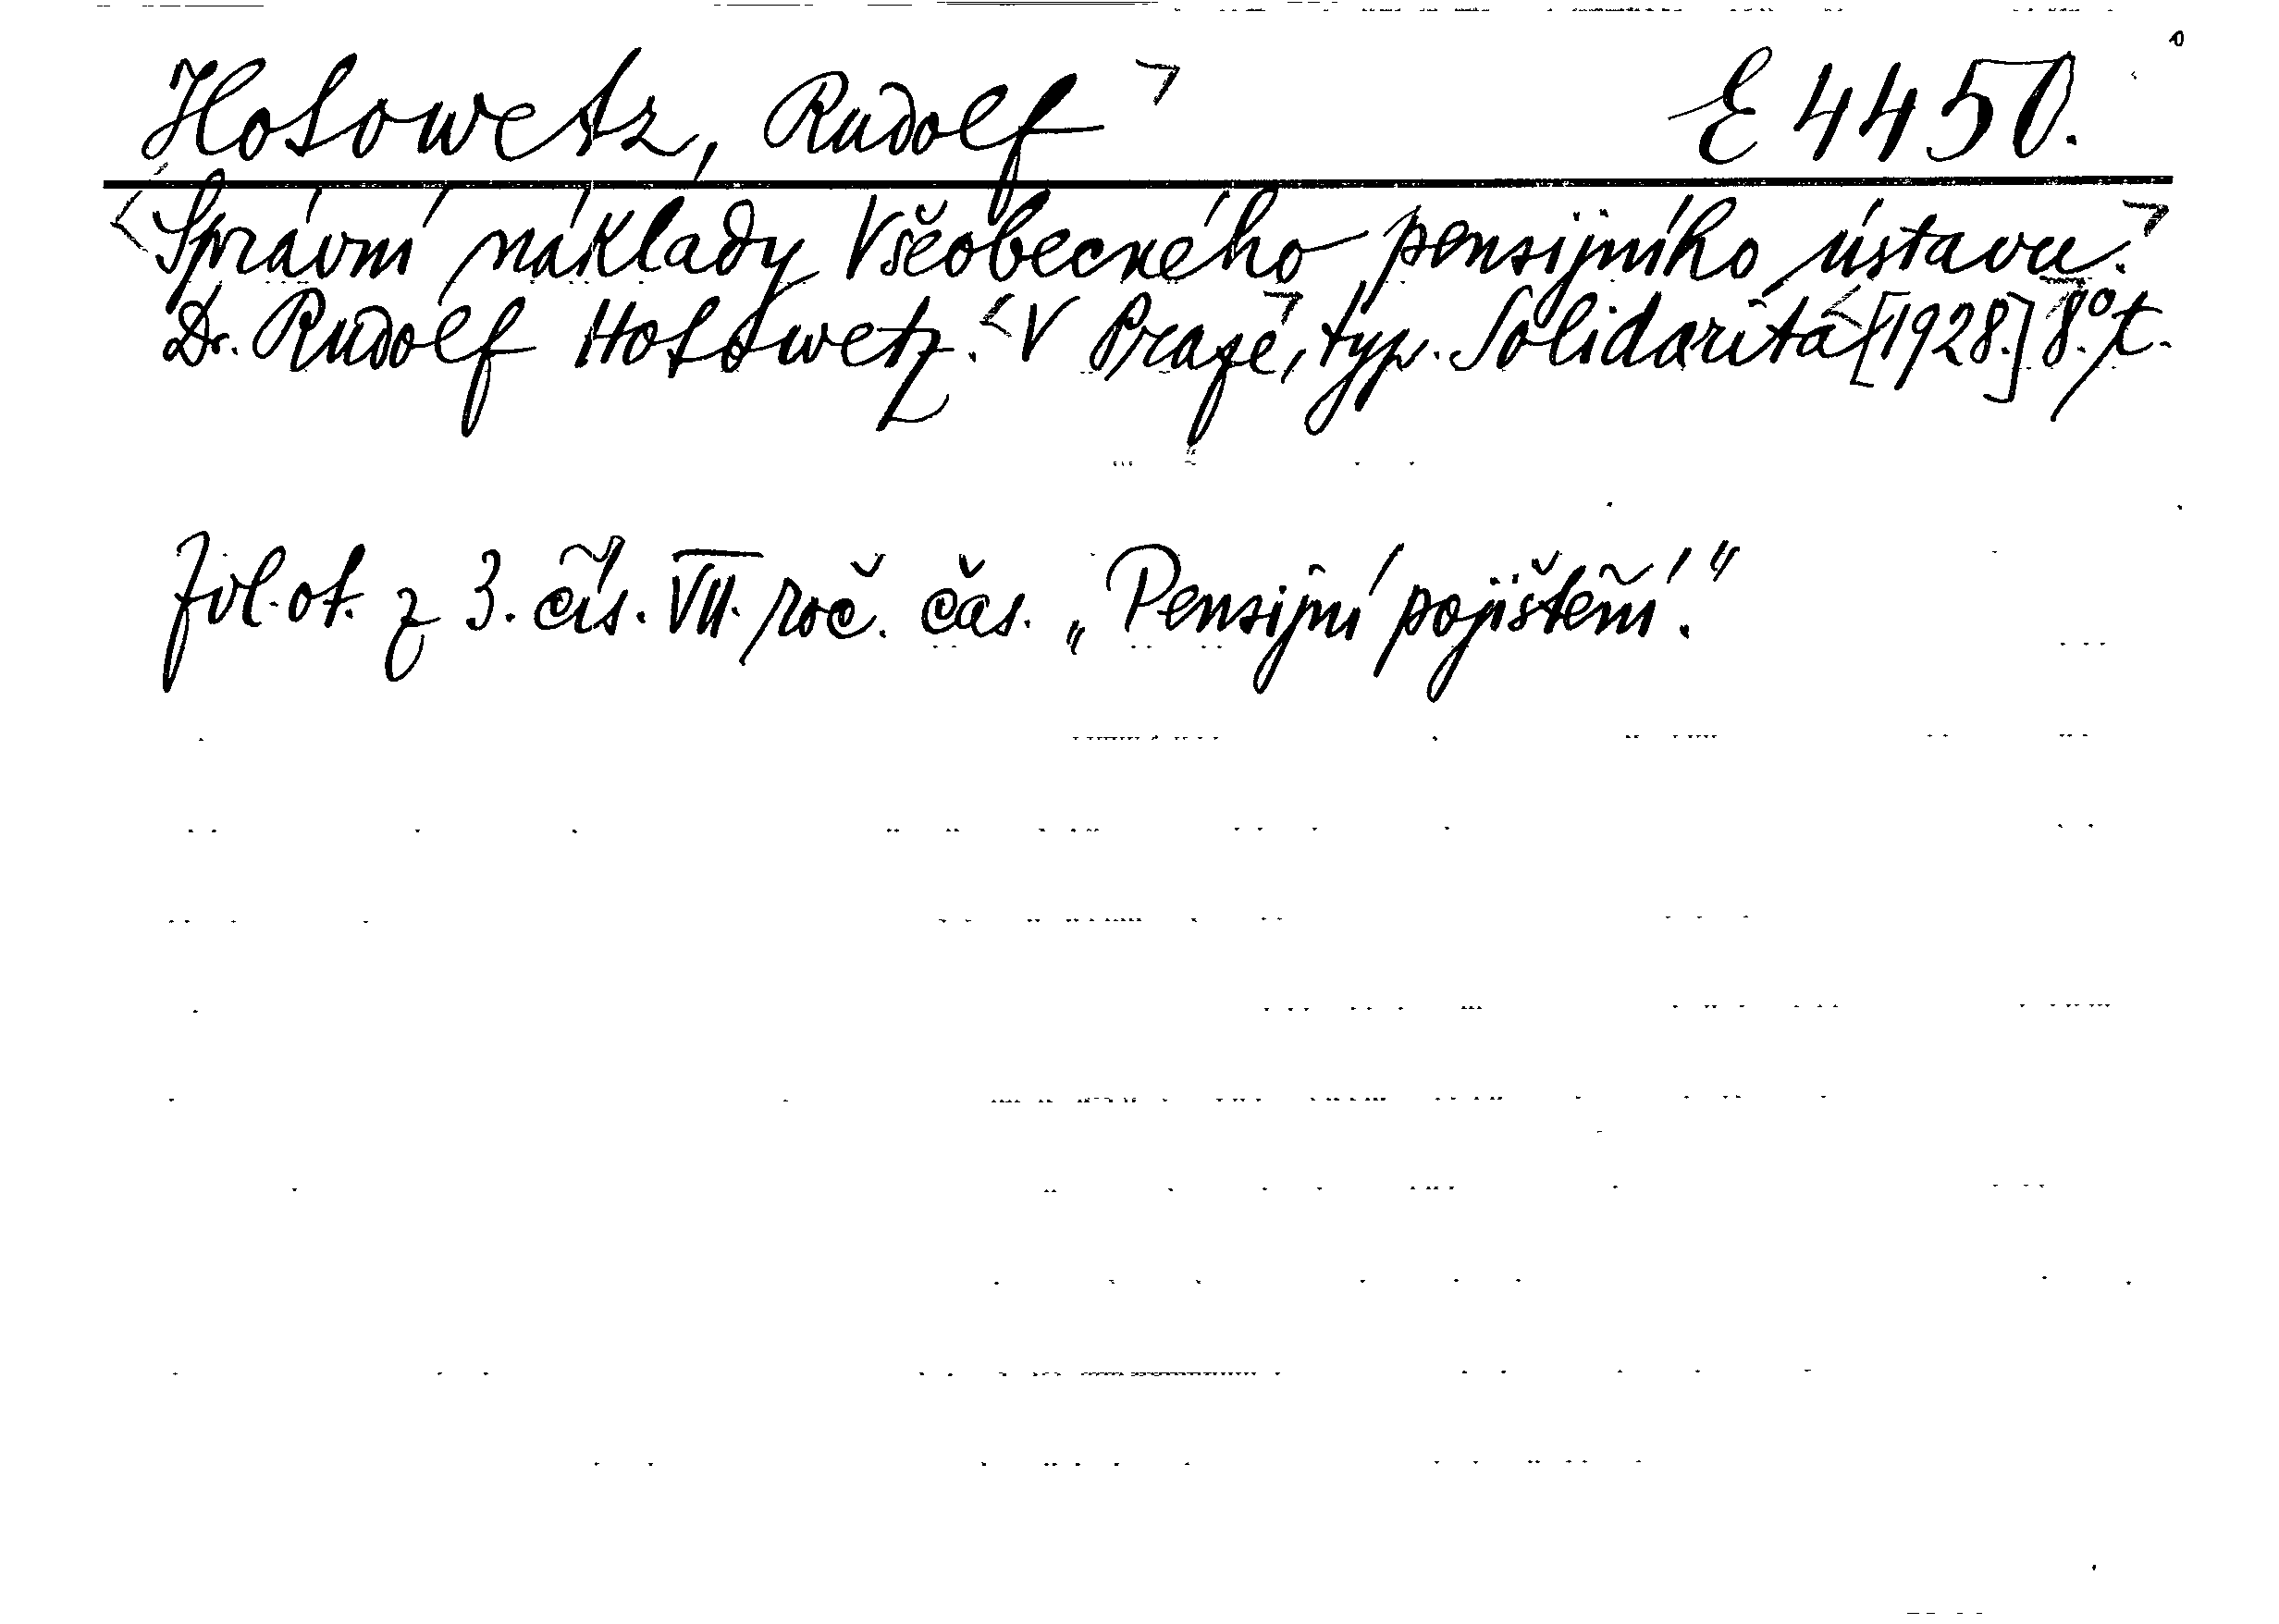 Hotowetz, Rudolf E 4450.
Správní náklady Všeobecného pensijního ústavu.
Dr. Rudolf Hotowetz. V Praze, typ. Solidarita [1928.] 8.° t.
Zvl. ot. z 3. čís. VII. roč. čas. „Pensijní pojištění."